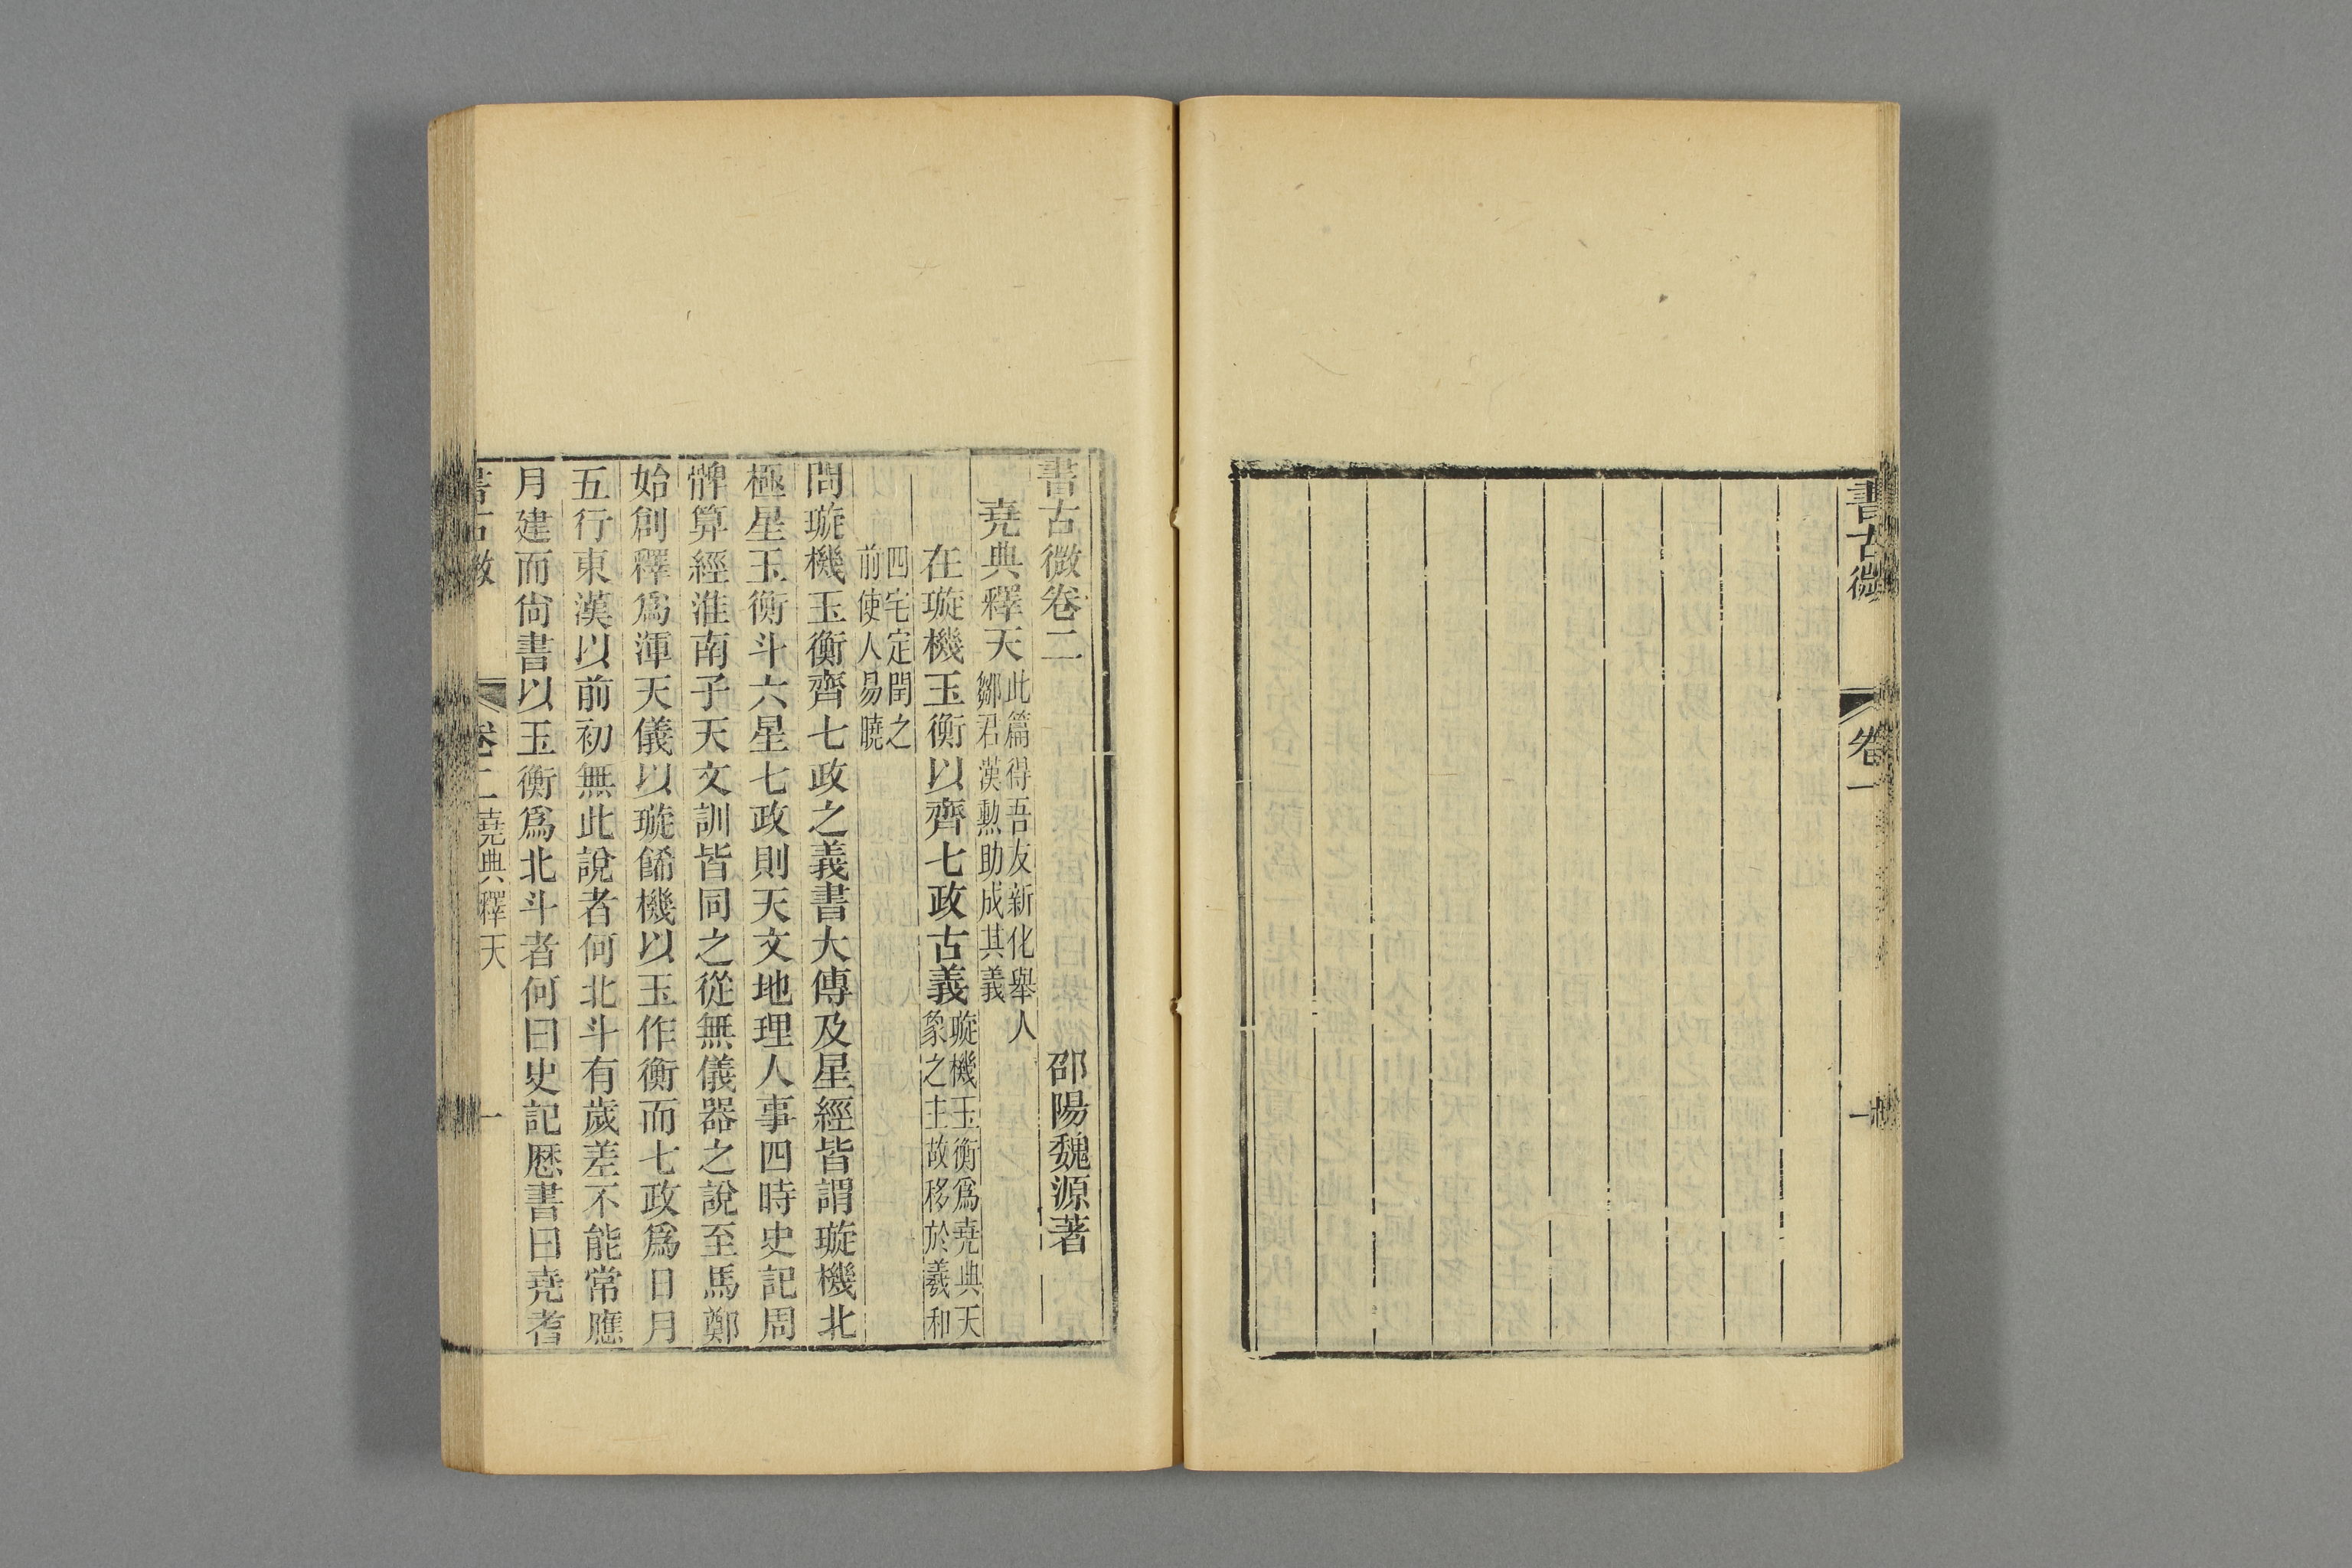 書古微
卷一
書古微卷二
邵陽魏源著
堯典釋天
此篇得吾友新化舉人
鄒君漢勲助成其義
在璇機玉衡以齊七政古義
璇機玉衡爲堯典天
象之主故移於羲和
四宅定閏之
前使人易曉
問璇機玉衡齊七政之義書大傳及星經皆謂璇機北
極星玉衡斗六星七政則天文地理人事四時史記周
髀算經淮南子天文訓皆同之從無儀器之說至馬鄭
始創釋爲渾天儀以璇餙機以玉作衡而七政爲日月
五行東漢以前初無此說者何北斗有歲差不能常應
月建而尙書以玉衡爲北斗者何曰史記歷書曰堯耆
書古微
卷二
堯典釋天
一